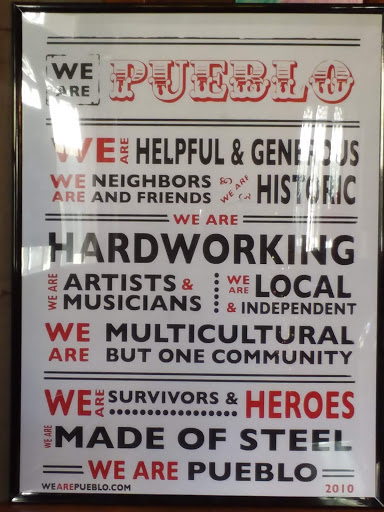 WE ARE PUEBLO
WE ARE HELPFUL & GENEROUS
WE ARE NEIGHBORS AND FRIENDS & WE ARE HISTORIC
WE ARE
HARDWORKING
WE ARE ARTISTS & MUSICIANS
WE ARE LOCAL & INDEPENDENT
WE ARE MULTICULTURAL
BUT ONE COMMUNITY
WE ARE SURVIVORS & HEROES
WE ARE MADE OF STEEL
WE ARE PUEBLO
WEAREPUEBLO.COM
2010